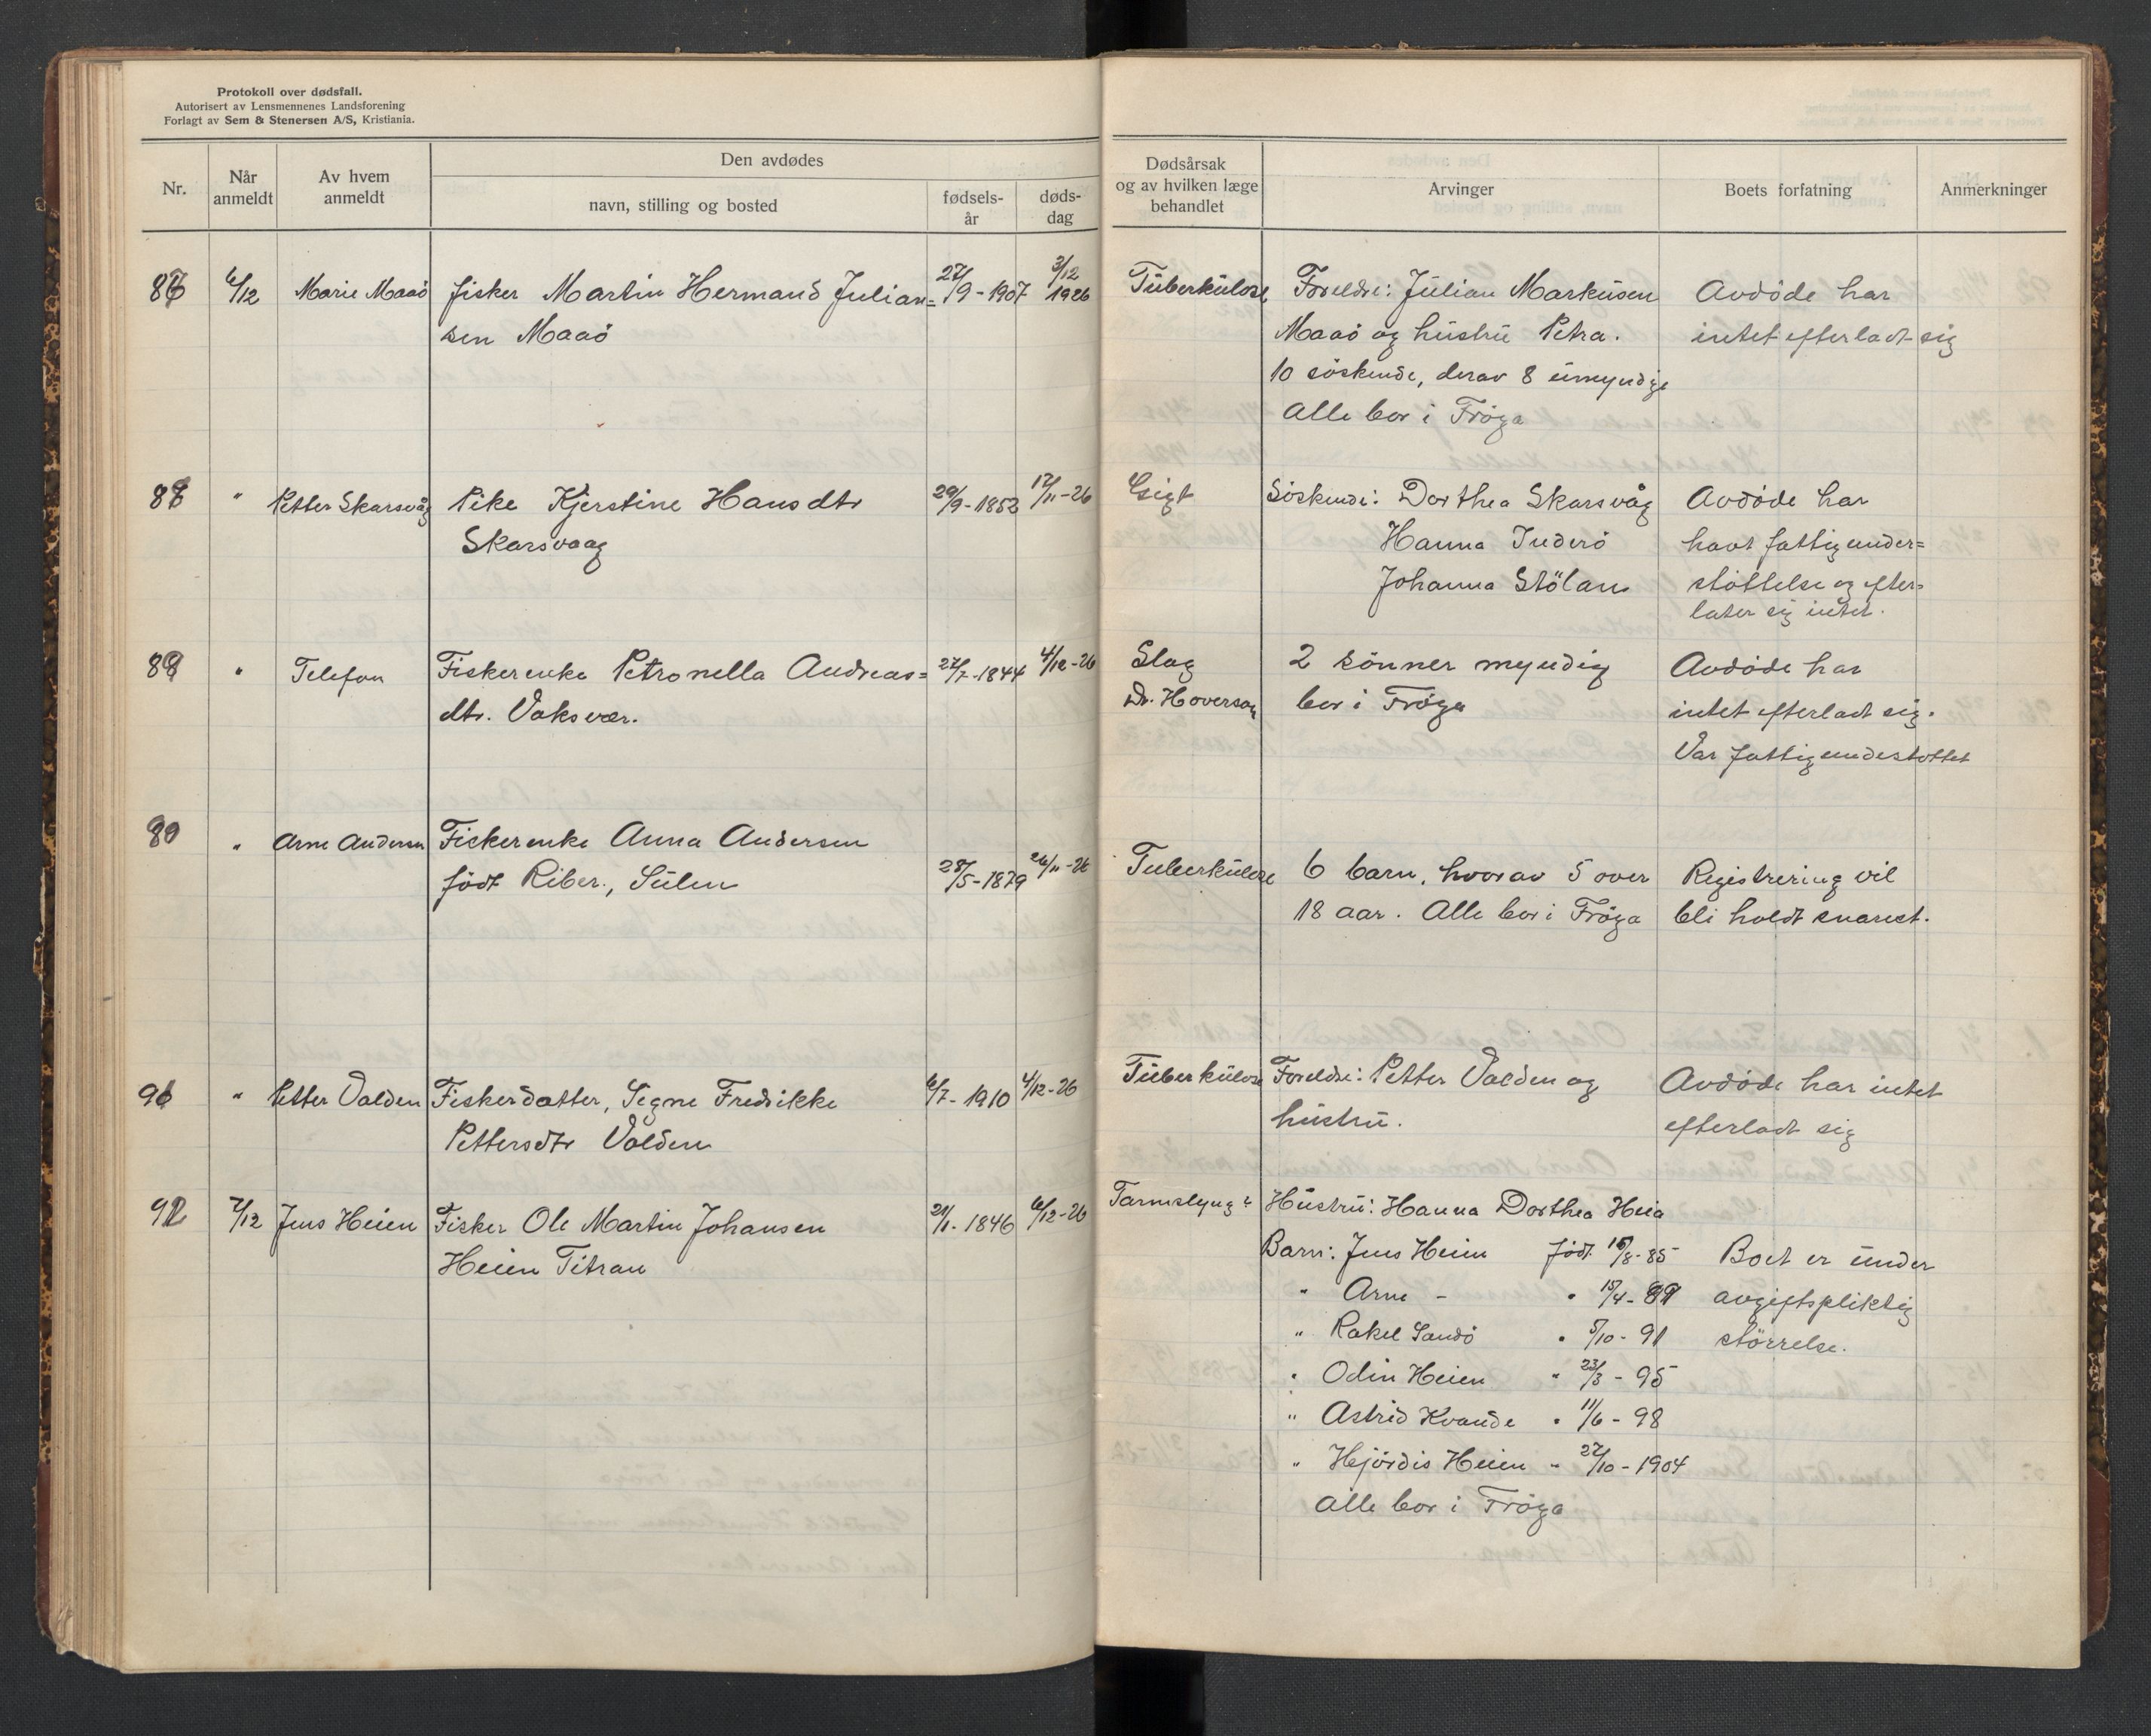 Protokoll over dødsfall.
Autorisert av Lensmennenes Landsforening
Forlagt av Sem & Stenersen A/S, Kristiania.
Nr.
Når anmeldt
Av hvem anmeldt
Den avdødes
navn, stilling og bosted
fødsels-
år
døds-
dag
Dødsårsak
og av hvilken læge
behandlet
Arvinger
Boets forfatning
Anmerkninger
6/12 Marie Maaö fisker Martin Hermand Julian= 27/9-1907 3/12 1926
sen Maaö
Tuberkulose
Foreldre: Julian Markusen
Maaö og hustru Petra.
10 söskende, derav 8 umyndige
Alle bor i Fröya
Avdöde har
intet efterladt sig
" Petter Skarsvåg Pike Kjerstine Hansdtr 29/9-1852 17/11-26
Skarsvaag
Gigt
Söskende: Dorthea Skarsvåg
Hanna Inderö
Johanna Stölan
Avdöde har
havt fattigunder=
stöttelse og efter=
later sig intet.
" Telefon Fiskerenke Petronella Andreas= 27/7-1844 4/12-26
dtr. Vaksvær.
Slag
Dr. Hoversen
2 sönner myndig
bor i Fröya
Avdöde har
intet efterladt sig.
Var fattigundestöttet
" Arne Andersen Fiskerenke Anna Andersen
födt Riber., Sulen 28/5-1879 26/11-26
Tuberkulose
6 barn, hvorav 5 over
18 aar. Alle bor i Fröya
Registrering vil
bli holdt snarest.
" Petter Valden Fiskerdatter, Signe Fredrikke 6/7-1910 4/12-26
Pettersdtr Valden
Tuberkulose
Foreldre: Petter Valden og
hustru.
Avdöde har intet
efterladt sig
92 7/12 Jens Heien Fisker Ole Martin Johansen 21/1-1846 6/12-26
Heien Titran
Tarmslyng
Hustru: Hanna Dorthea Heia
Barn: Jens Heien födt 15/8-85
" Arne - " 15/4-89
" Rakel Sandö " 5/10-91
" Odin Heien " 23/3-95
" Astrid Kvande " 11/6-98
" Hejördis Heien " 27/10-1904
Alle bor i Fröya
Boet er under
avgiftspliktig
störrelse.